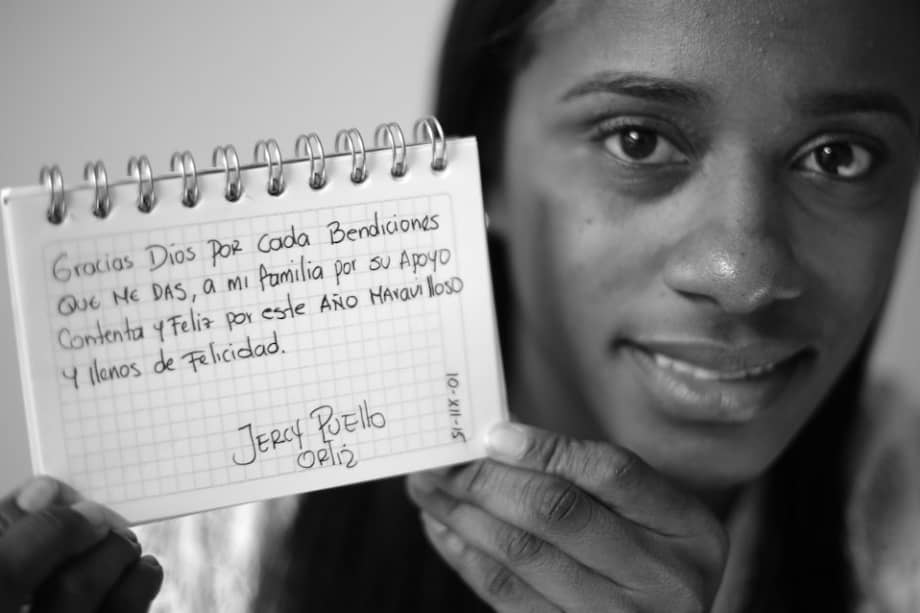 Gracias Dios por cada Bendiciones
que me das, a mi familia por su Apoyo
Contenta y Feliz por este AÑO MAravilloso
y llenos de Felicidad.
Jercy Puello
Ortiz
10-XII-15